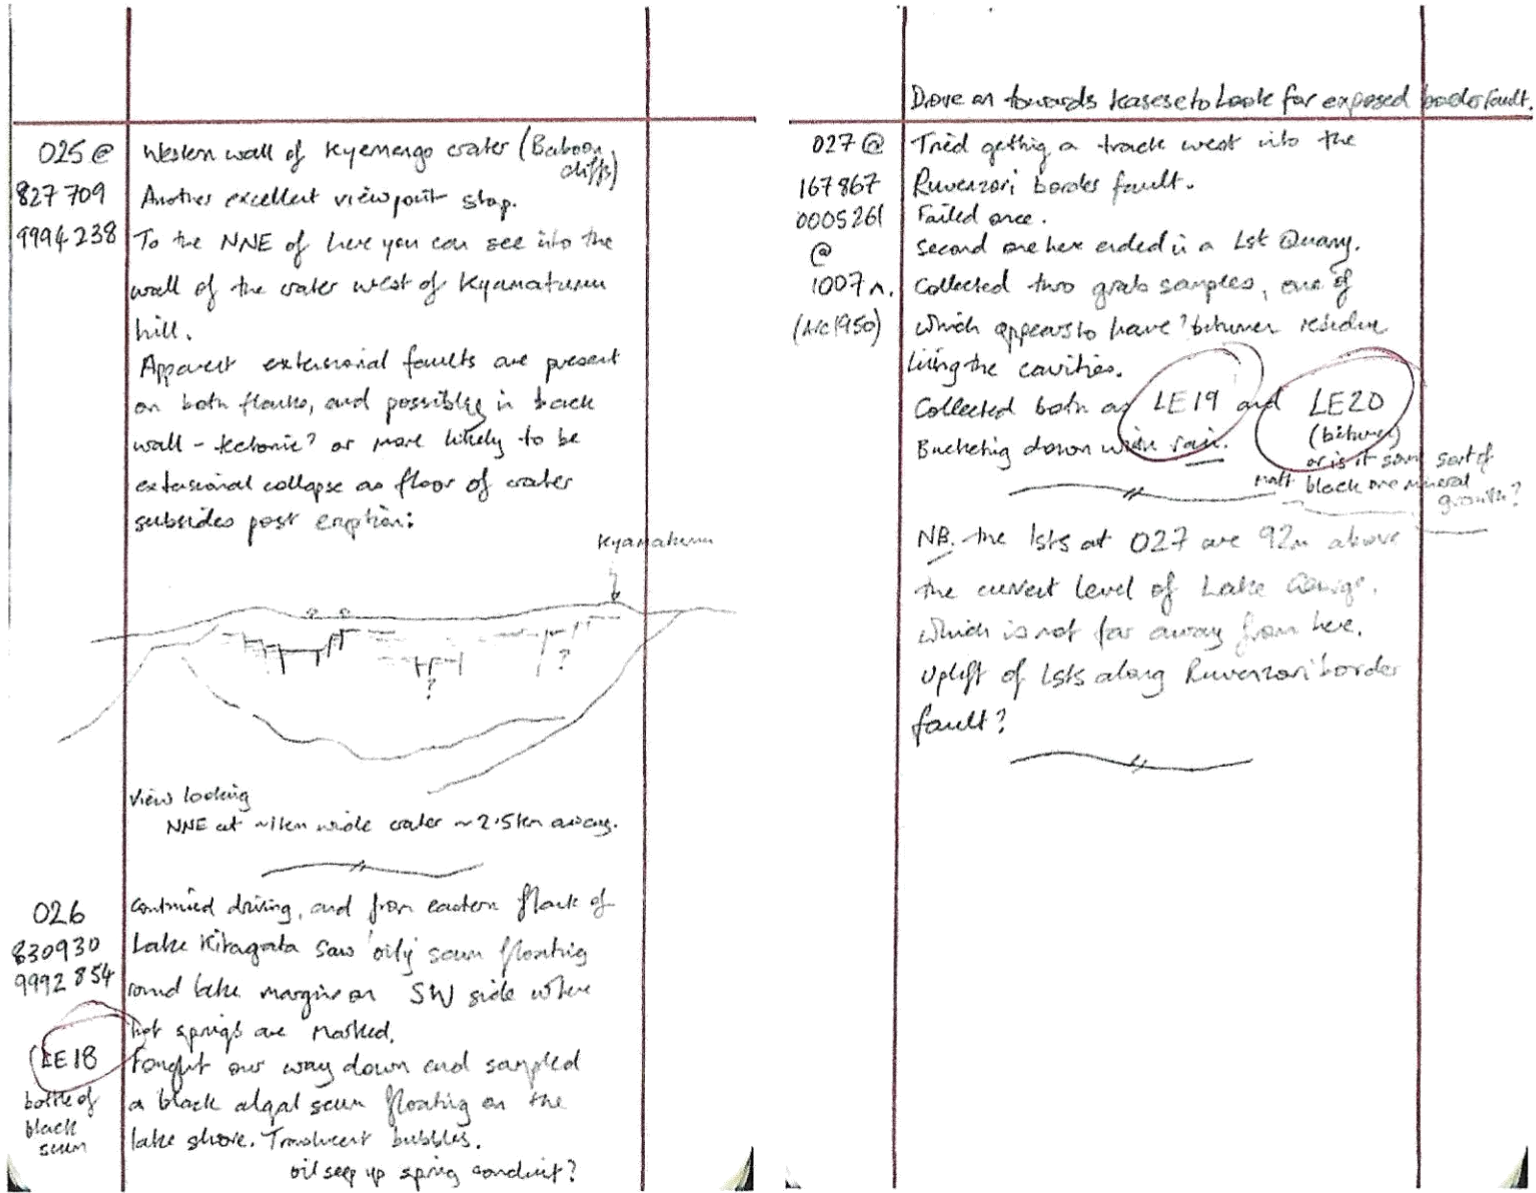 025 @ Western wall of Kyemengo crater (Baboon
cliffs)
827 709 Another excellent viewpoint stop.
9994 238 To the NNE of here you can see into the
wall of the crater west of Kyamatumu
hill.
Apparent extensional faults are present
on both flanks, and possibly in back
wall - tectonic? or more likely to be
extensional collapse as floor of crater
subsides post eruption:
Kyamatumu
? ?
?
?
View looking
NNE at ~1km wide crater ~2.5km away.
026 Continued driving, and from eastern flank of
830930 Lake Kitagata saw 'oily' scum floating
9992 854 round lake margin on SW side where
hot springs are marked.
LE18 Fought our way down and sampled
bottle of a black algal scum floating on the
black lake shore. Translucent bubbles.
scum oil seep up spring conduit?
Drove on towards Kasese to look for exposed border fault.
027 @ Tried getting a track west into the
167867 Ruwenzori border fault.
0005261 Failed once.
@ Second one here ended in a Lst Quarry.
1007m. Collected two grab samples, one of
(A/c 1950) which appears to have ?bitumen residue
lining the cavities.
Collected both as LE19 and LE20
(bitumen)
Bucketing down with rain.
or is it some sort of
matt black ore mineral
growth?
NB. the lsts at 027 are 92m above
the current level of Lake George,
which is not far away from here.
Uplift of lsts along Ruwenzori border
fault?